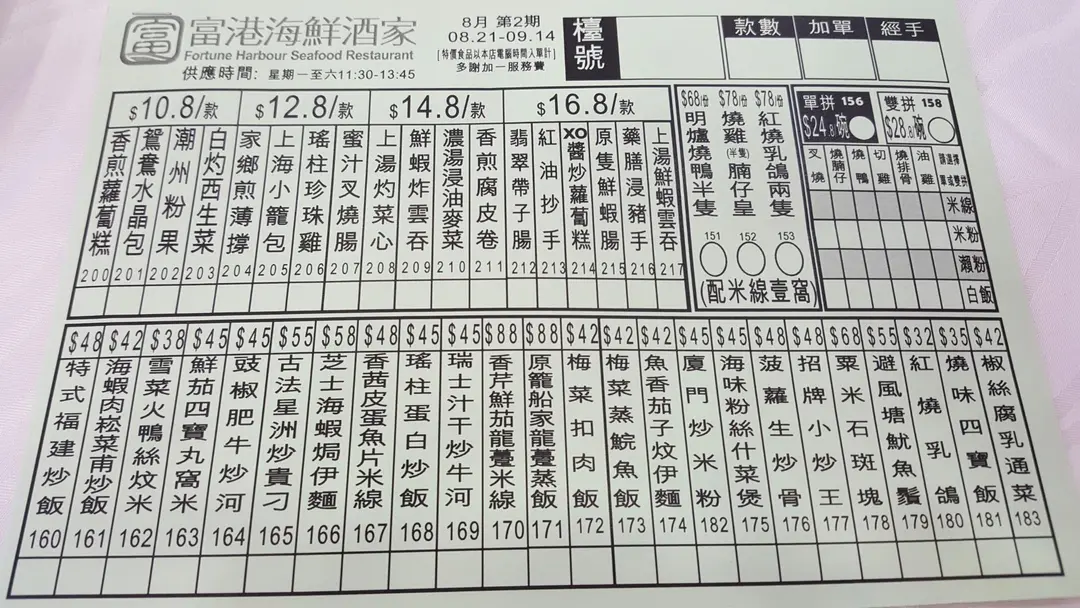 富港海鮮酒家
Fortune Harbour Seafood Restaurant
供應時間: 星期一至六11:30-13:45
8月 第2期
08.21-09.14
[特價食品以本店電腦時間入單計]
多謝加一服務費
檯號
款數
加單
經手
$10.8/款
香煎蘿蔔糕 200
鴛鴦水晶包 201
潮州粉果 202
白灼西生菜 203
$12.8/款
家鄉煎薄撐 204
上海小籠包 205
瑤柱珍珠雞 206
蜜汁叉燒腸 207
$14.8/款
上湯灼菜心 208
鮮蝦炸雲吞 209
濃湯浸油麥菜 210
香煎腐皮卷 211
$16.8/款
翡翠帶子腸 212
紅油抄手 213
XO醬炒蘿蔔糕 214
原隻鮮蝦腸 215
藥膳浸豬手 216
上湯鮮蝦雲吞 217
$68/份 明爐燒鴨半隻 151
$78/份 燒雞(半隻)腩仔皇 152
$78/份 紅燒乳鴿兩隻 153
(配米線壹窩)
單拼 156
$24.8/碗
雙拼 158
$28.8/碗
叉燒
燒腩仔
燒鴨
切雞
燒排骨
油雞
請選擇
單或雙拼
米線
米粉
瀨粉
白飯
$48 特式福建炒飯 160
$42 海蝦肉崧菜甫炒飯 161
$38 雪菜火鴨絲炆米 162
$45 鮮茄四寶丸窩米 163
$45 豉椒肥牛炒河 164
$55 古法星洲炒貴刁 165
$58 芝士海蝦焗伊麵 166
$48 香茜皮蛋魚片米線 167
$45 瑤柱蛋白炒飯 168
$45 瑞士汁干炒牛河 169
$88 香芹鮮茄龍躉米線 170
$88 原籠船家龍躉蒸飯 171
$42 梅菜扣肉飯 172
$42 梅菜蒸鯇魚飯 173
$42 魚香茄子炆伊麵 174
$45 廈門炒米粉 182
$45 海味粉絲什菜煲 175
$48 菠蘿生炒骨 176
$48 招牌小炒王 177
$68 粟米石斑塊 178
$55 避風塘魷魚鬚 179
$32 紅燒乳鴿 180
$35 燒味四寶飯 181
$42 椒絲腐乳通菜 183